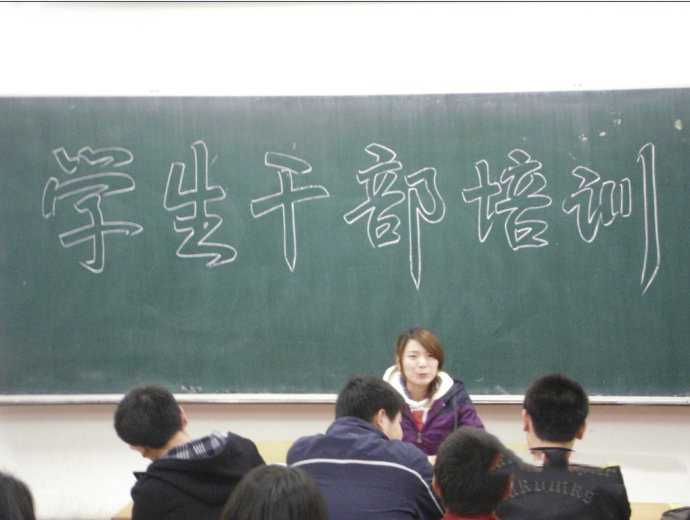 学生干部培训